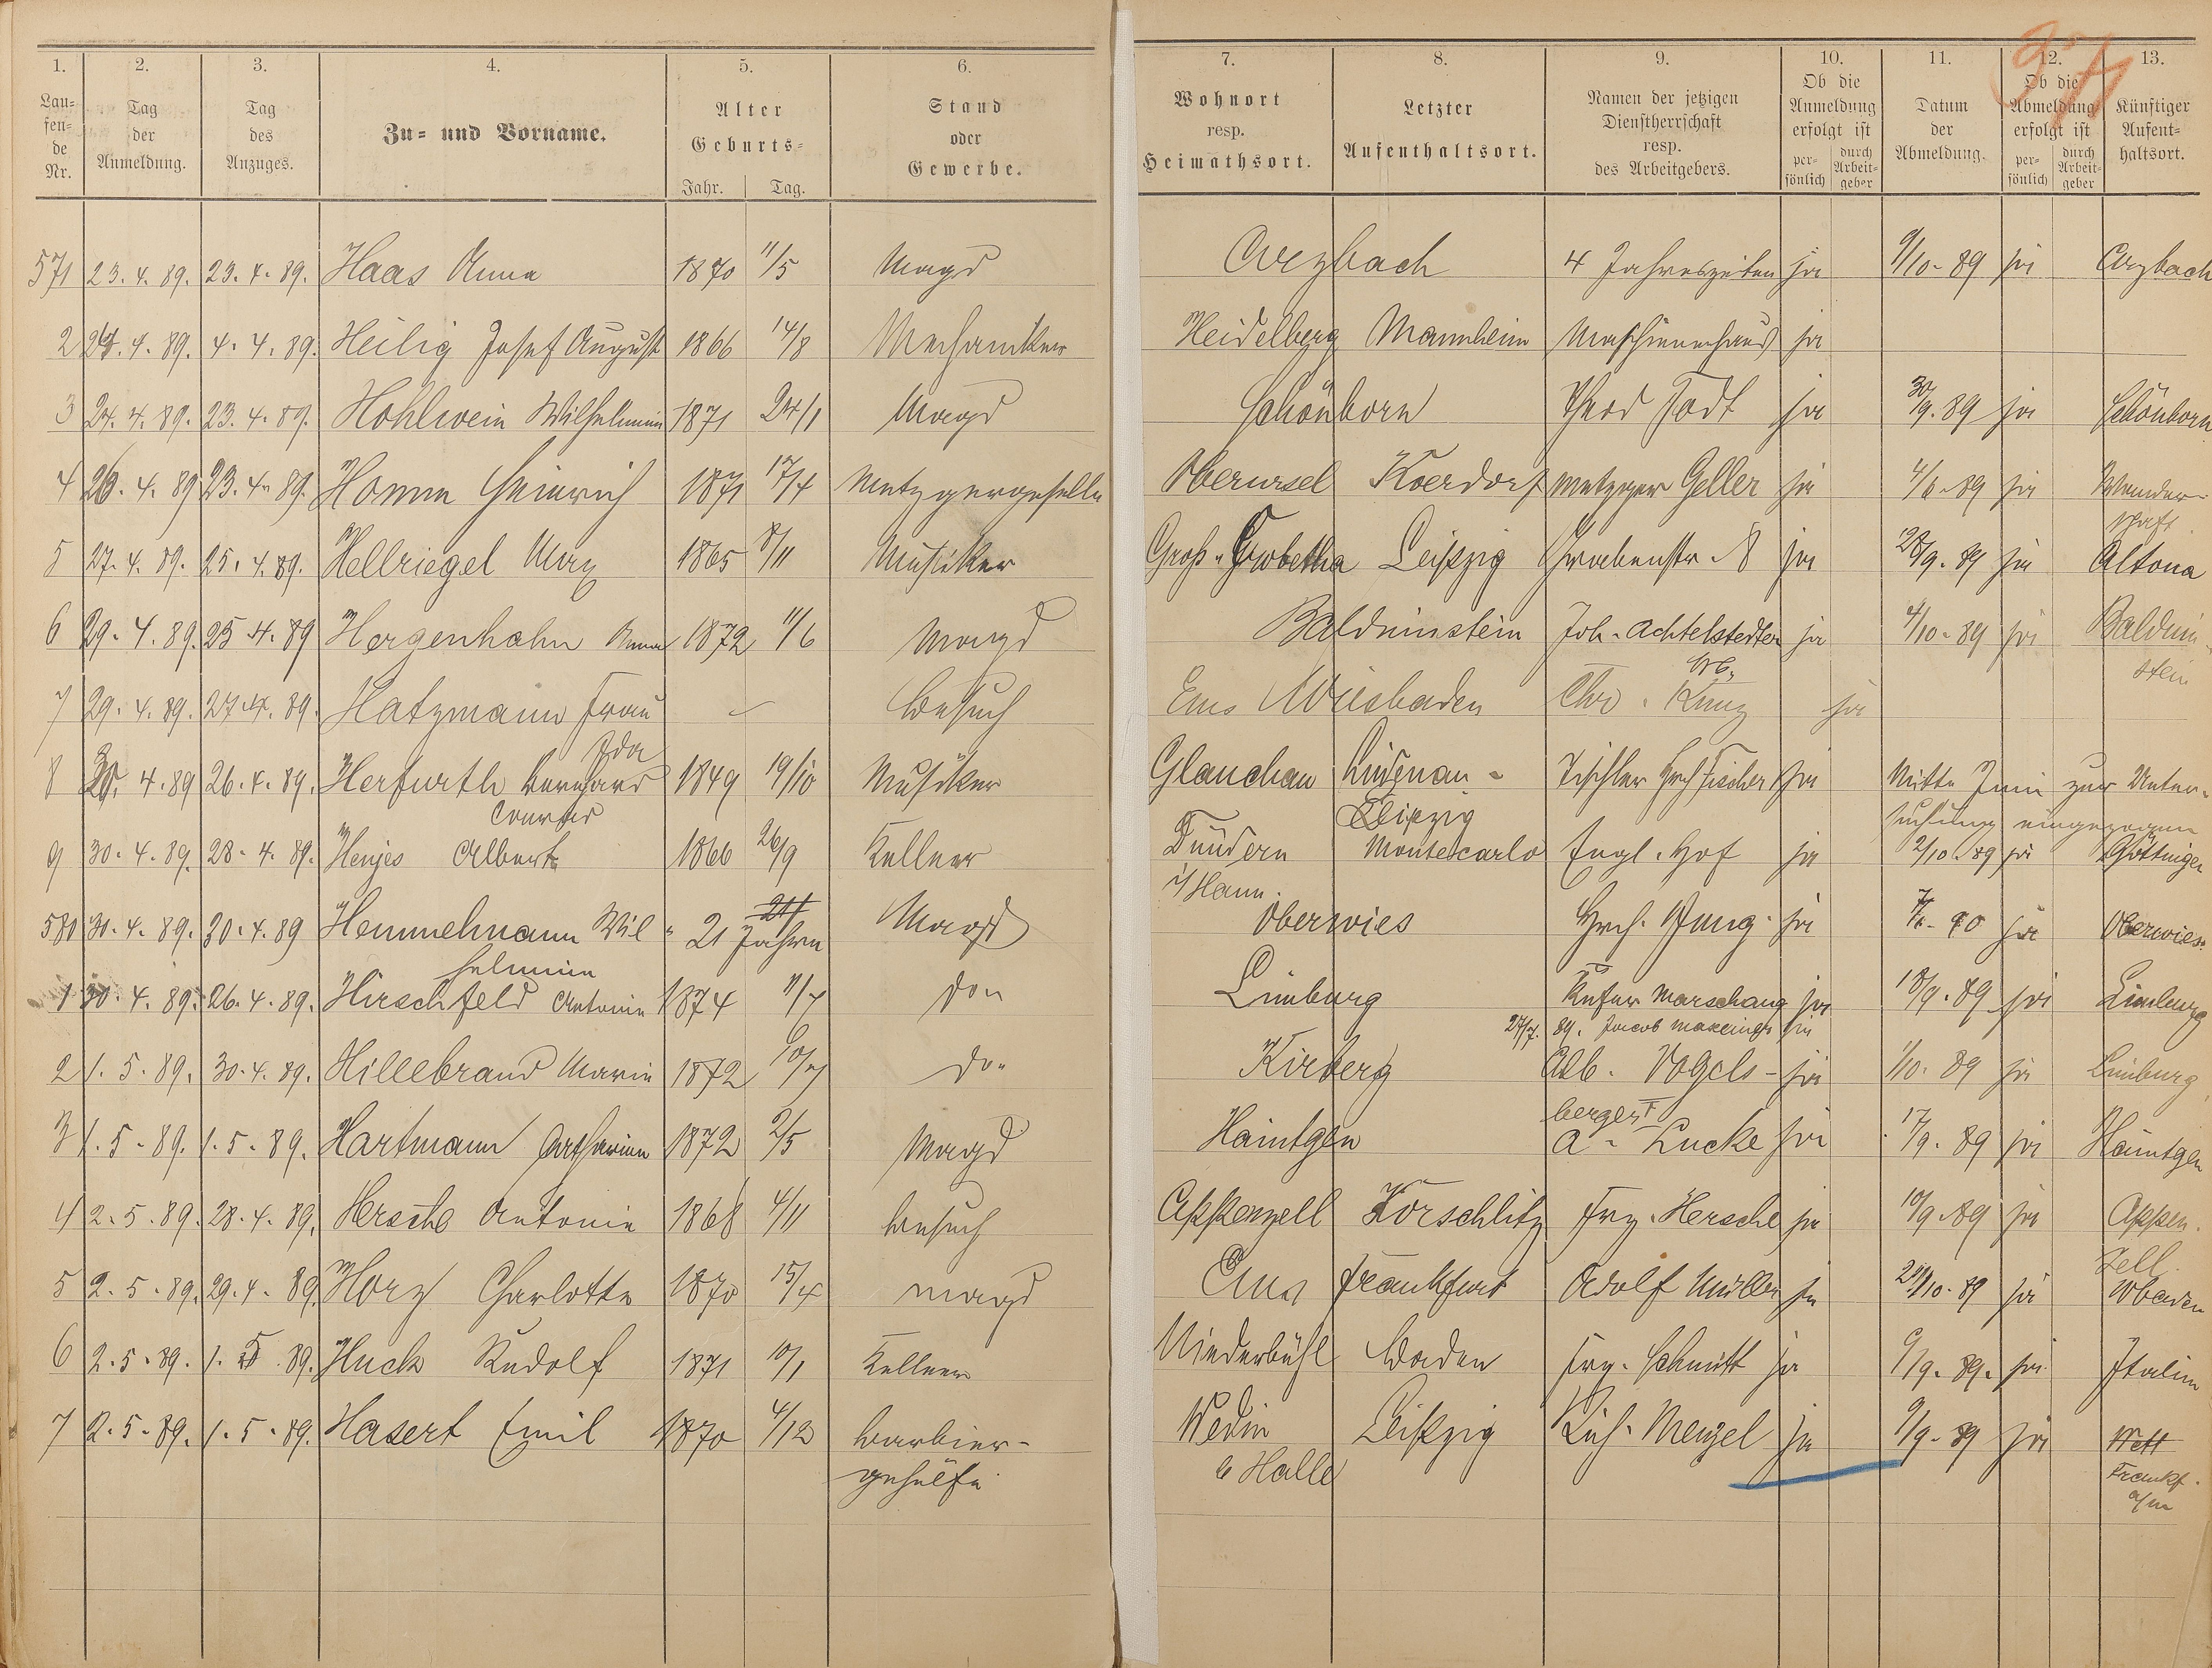 37
1. 2. 3. 4. 5. 6. 7. 8. 9. 10. 11. 12. 13.
Lau=fen=de Nr. Tag der Anmeldung. Tag des Anzuges. Zu= und Vorname. Alter Geburts= Jahr. Tag. Stand oder Gewerbe. Wohnort resp. Heimathsort. Letzter Aufenthaltsort. Namen der jetzigen Dienstherrschaft resp. des Arbeitgebers. Ob die Anmeldung erfolgt ist per=sönlich durch Arbeit=geber Datum der Abmeldung. Ob die Abmeldung erfolgt ist per=sönlich durch Arbeit=geber Künftiger Aufent=haltsort.
571 23. 4. 89. 23. 4. 89. Haas Anna 1870 11/5 Magd Arzbach 4 Jahreszeiten ja 9/10. 89 ja Arzbach
2 24. 4. 89. 4. 4. 89. Heilig Josef August 1866 14/8 Mechaniker Heidelberg Mannheim Maschinenhaus ja
3 24. 4. 89. 23. 4. 89. Hohlwein Wilhelmine 1871 24/1 Magd Schönborn Theod Todt ja 30/9. 89 ja Schönborn
4 26. 4. 89 23. 4. 89. Homm Heinrich 1871 17/4 Metzgergeselle Oberursel Koerdorf Metzger Geller ja 4/6. 89 ja Wander=
schaft
5 27. 4. 89. 25. 4. 89. Hellriegel Max 1865 8/11 Musiker Groß-Gorbetha Leipzig Grabenstr. 8 ja 28/9. 89 ja Altona
6 29. 4. 89. 25. 4. 89 Hergenhahn Anna 1872 11/6 Magd Balduinstein Joh. Achtelstedter ja 4/10. 89 ja Balduin-
Ww. stein
7 29. 4. 89. 27. 4. 89. Hatzmann Frau Besuch Ems Wiesbaden Chr. Kunz ja
Ida
8 30. 4. 89 26. 4. 89. Herfurth Bernhard 1849 19/10 Musiker Glauchau Lindenau - Tischler Hch Fischer ja Mitte Juni zur Unter-
Conrad Leipzig suchung eingezogen
9 30. 4. 89. 28. 4. 89. Henjes Albert 1866 26/9 Kellner Tündern Montecarlo Engl. Hof ja 2/10. 89 ja Göttingen
i/ Hann.
580 30. 4. 89. 30. 4. 89 Hemmelmann Wil- 21 Jahre Magd Oberwies Hch. Jung ja 90 ja Oberwies.
helmine
1 30. 4. 89. 26. 4. 89. Hirschfeld Antonie 1874 11/7 do. Limburg Küfer Marschang ja 18/9. 89 ja Limburg
27/7. 89. Jacob ja
2 1. 5. 89. 30. 4. 89. Hillebrand Marie 1872 10/7 do. Kirberg Alb. Vogels- ja 1/10. 89 ja Limburg
berger
3 1. 5. 89. 1. 5. 89. Hartmann Catharina 1872 2/5 Magd Haintgen A. Lucke ja 17/9. 89 ja Haintgen
4 2. 5. 89. 28. 4. 89. Hersche Antonie 1868 4/11 Besuch Appenzell Körschlitz Frz. Hersche ja 10/9. 89 ja Appen.
zell.
5 2. 5. 89. 29. 4. 89. Horz Charlotte 1870 15/4 Magd Ems Frankfurt Adolf Müller ja 24/10. 89 ja Wbaden
6 2. 5. 89. 1. 5. 89. Huck Rudolf 1871 10/1 Kellner Niederbühl Baden Frz. Schmitt ja 6/9. 89. ja Italien
7 2. 5. 89. 1. 5. 89. Hasert Emil 1870 4/12 Barbier- Leipzig Menzel ja 9/9. 89 ja Wett
gehülfe b Halle Frankf.
a/m